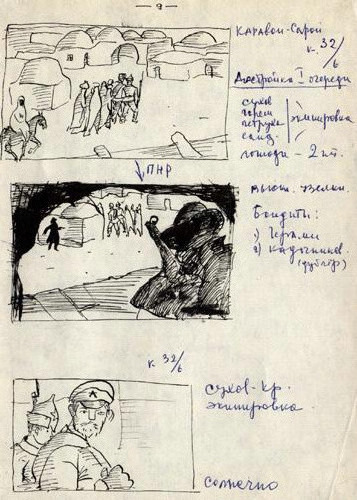 — 9 —
Каравон-Сарой
к. 32/6
Достройка I очереди
сухов
гарем
петруха
саид
экипировка
лошади – 2 шт.
ПНР
вьюш. узелки.
Бандиты:
1) Чечами
2) Кадочников
(дублёр)
к 32/6
сухов - кр.
экипировка.
солнечно